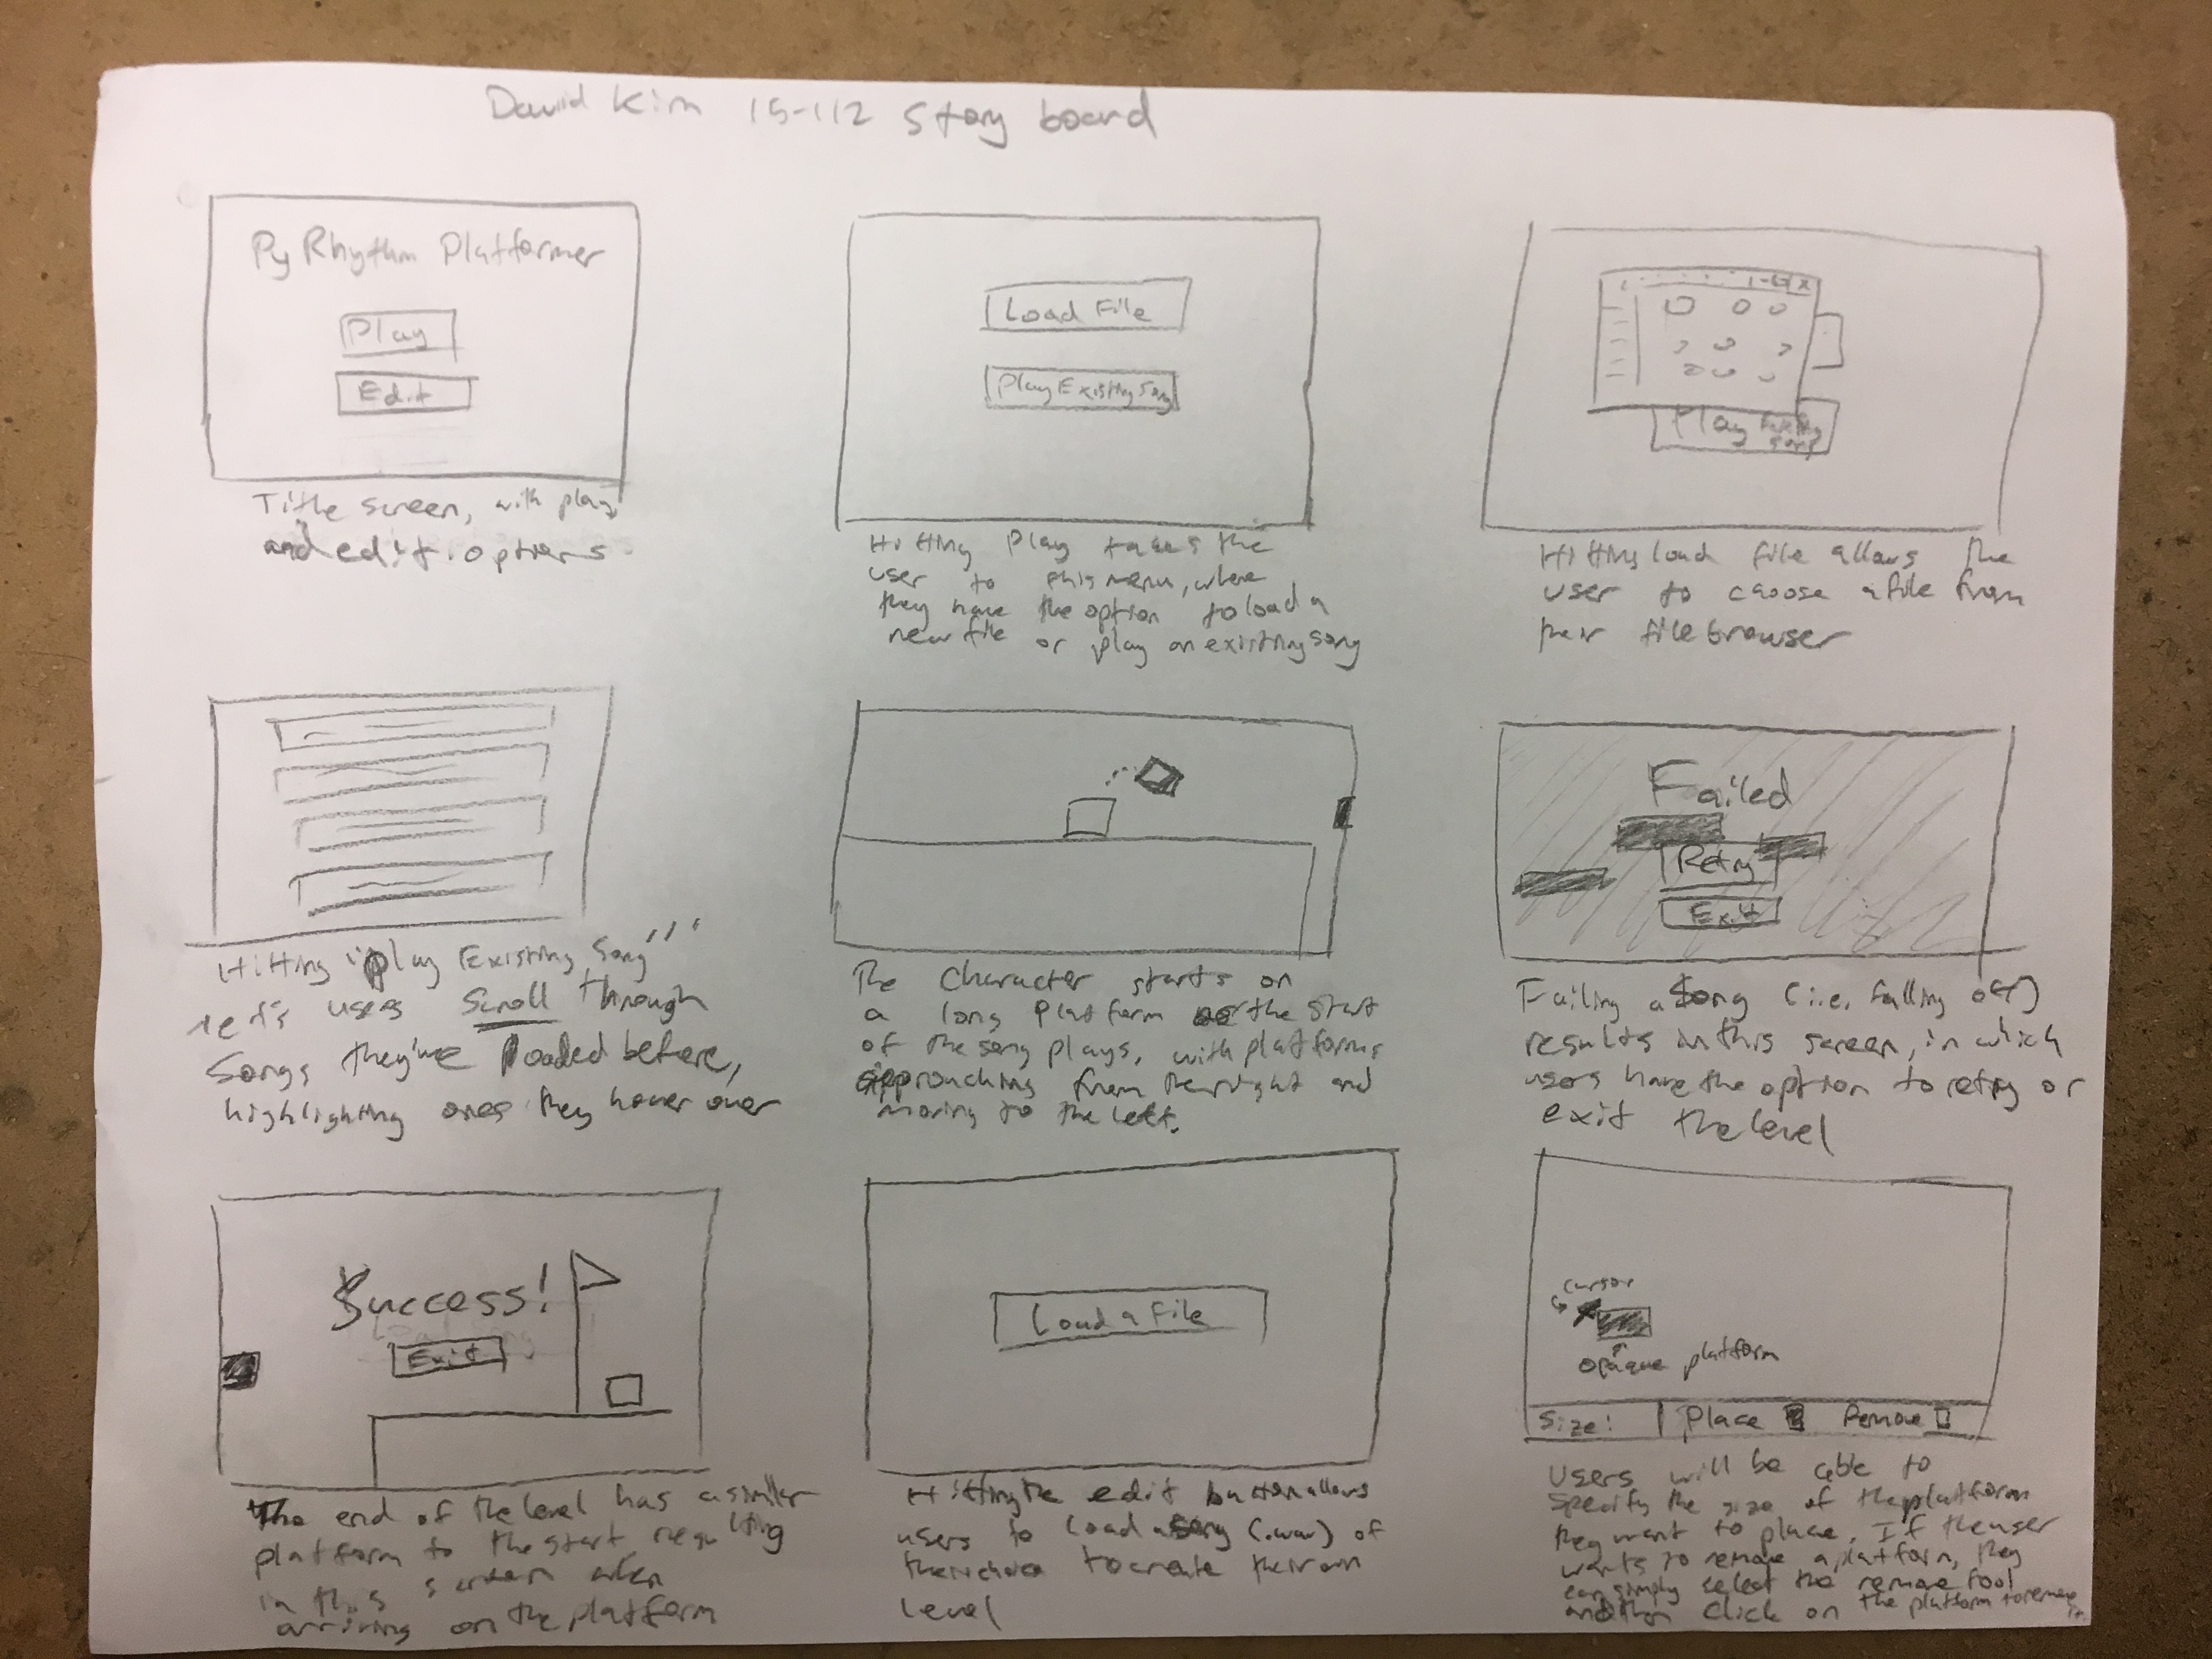 David Kim 15-112 Story board
Py Rhythm Platformer
Play
Edit
Title screen, with play
and edit options
Load File
Play Existing Song
Hitting Play takes the
user to this menu, where
they have the option to load a
new file or play an existing song
Play Existing
song
Hitting load file allows the
user to choose a file from
their file browser
Hitting "Play Existing Song"
lets users scroll through
songs they've loaded before,
highlighting ones they hover over
The character starts on
a long platform the start
of the song plays, with platforms
approaching from the right and
moving to the left.
Failed
Retry
Exit
Failing a song (i.e. falling off)
results in this screen, in which
users have the option to retry or
exit the level
Success!
Exit
The end of the level has a similar
platform to the start resulting
in this screen when
arriving on the platform
Load a File
Hitting the edit button allows
users to load a song (.wav) of
their choice to create their own
level
cursor
opaque platform
Size: Place Remove
Users will be able to
specify the size of the platform
they want to place. If the user
wants to remove a platform, they
can simply select the remove tool
and then click on the platform to remove
it.